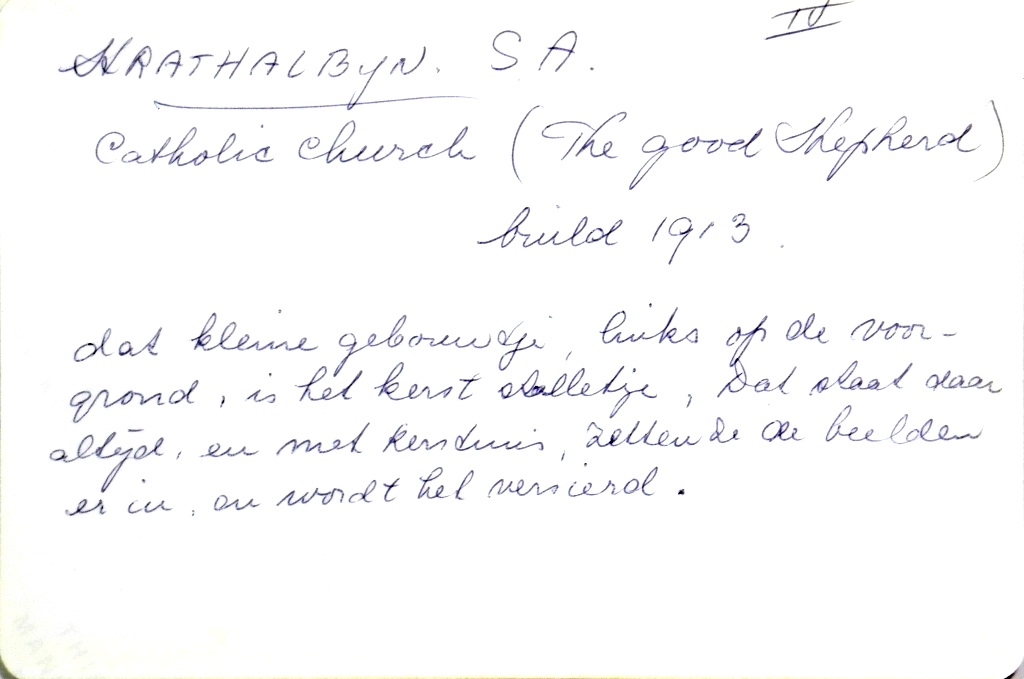 IV
STRATHALBYN. S A.
Catholic church (The good Shepherd)
build 1913.
dat kleine gebouwtje, links op de voor-
grond, is het kerst stalletje, Dat staat daar
altijd, en met kerstmis, zetten ze de beelden
er in, en wordt het versierd.